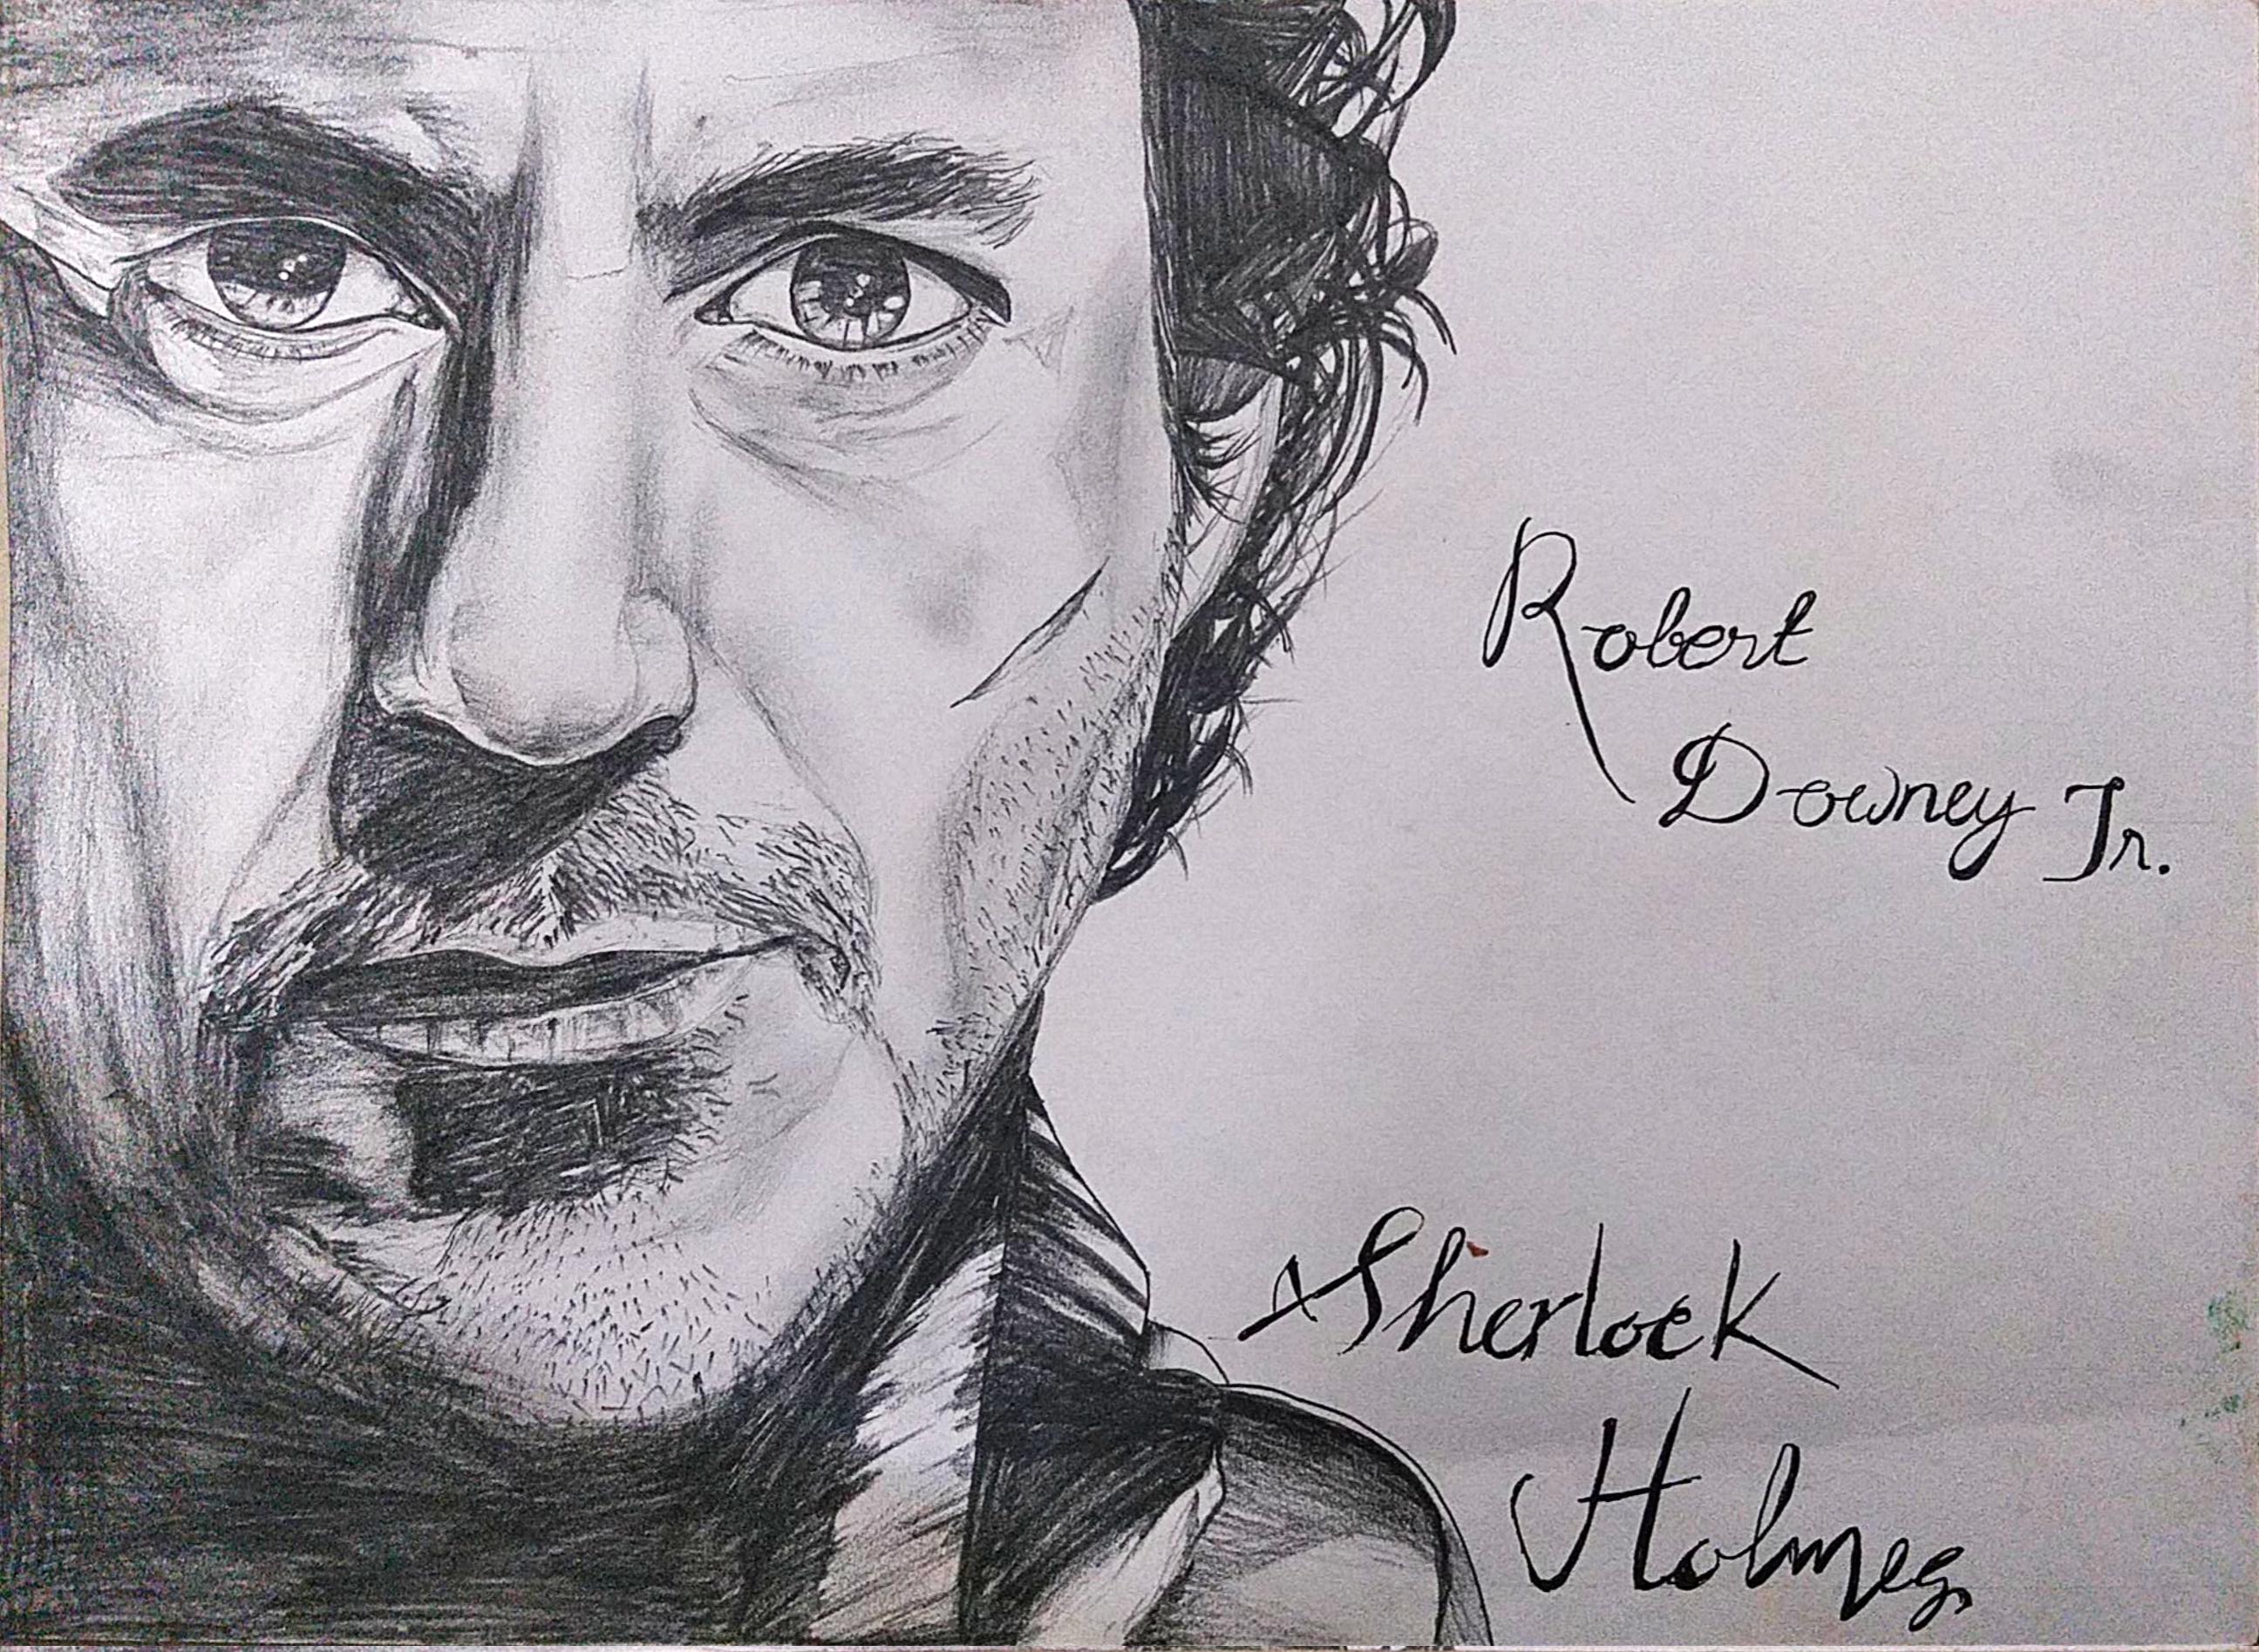 Robert
Downey Jr.
Sherlock
Holmes